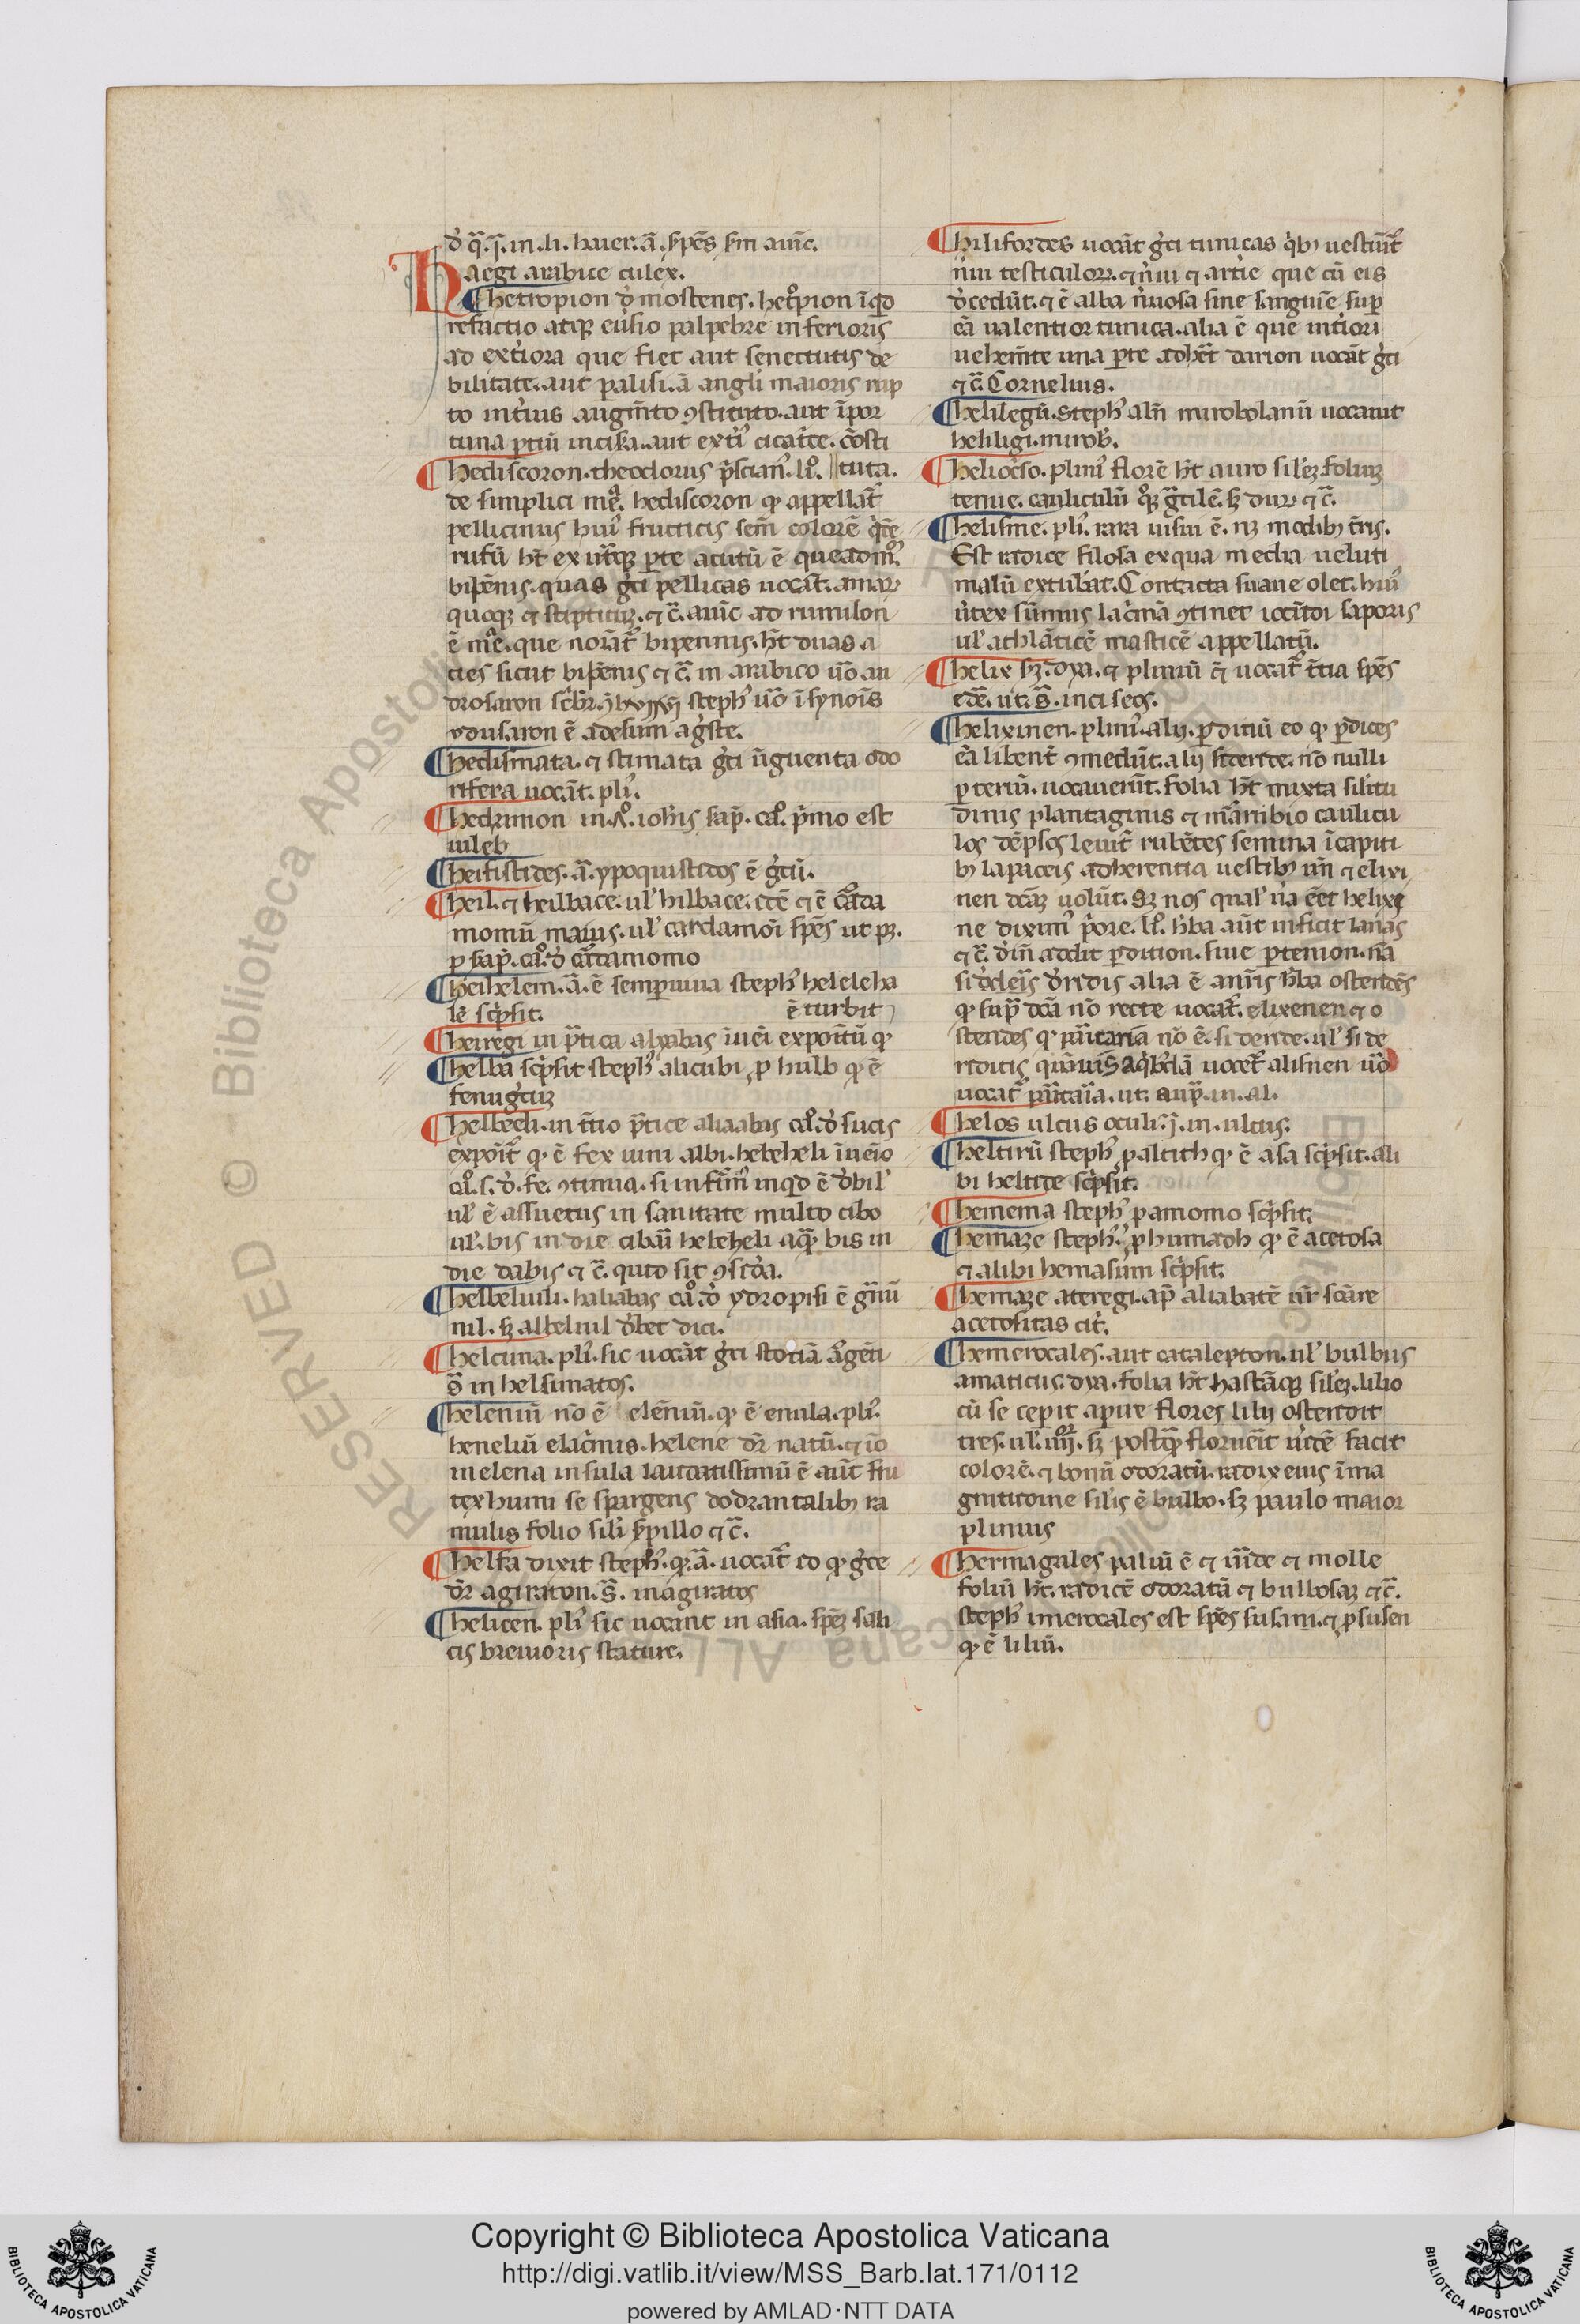 d' q̄. q̄. in. li. huer. ā. spēs sm auic̄.
Haegi arabice culex.
hetropion d' mostenes. hetopion īqd
refactio atqꝫ eūsio palpebre inferioris
ad exteriora que fiet aut senectutis de
bilitate. aut palisi. ā angli maioris rup
to inti'us augm̄to ꝯstituto. aut īpor
tuna ꝑtiū incisa. aut exti' cicatce. cōsti
hediscoron. theodorus p̄scian'. li°. tuta.
de simplici me. hediscoron qꝫ appellat̄
pellicinus hui' fructicis sem̄ colorē
rufū ht ex utqꝫ ꝑte acutū ē
bipēnis. quas gci pellicas uocāt. amarꝫ
quoqꝫ ⁊ stipticuꝫ. ⁊ c̄. auic̄ ad rumulon
ē me. que noīat̄ bipennis. ht duas a
cies sicut bipēnis ⁊ c̄. in arabico uō an
drosaron steph' uō ī synoīs
ydusaron ē adesum ag'ste.
hedismata. ⁊ stimata gci ūguenta odo
rifera uocāt. pli'.
hedrimon in. io his sap̄. ca°. p'mo est
iuleb
heifistides. ā. ypoquistidos ē gcū.
heil. ⁊ heilbace. ul' hilbace. ⁊ ē carda
momū maius. ul' cardamoī spēs ut pꝫ.
ꝑ sap̄. ca°. d' cardamomo
heihelem. ā. ē semꝑuiua steph' heleleha
lē sc'psit. ē turbit
heiregi in p̄tica īuēi expoitū qꝫ
helba sc'psit steph' alicubi ꝓ hulb qꝫ ē
fenugcuꝫ
helbech. in tio p̄tice aliaabas ca°. d' sucis
expoit̄ qꝫ ē fex uini albi. hebeheli īuēio
ca°. s. d'. fe. ꝯtinua. si infirm' inqd ē d'bil'
ul' ē assuetus in sanitate multo cibo
ul'. bis in die cibaū hebeheli aq̄ bis in
die dabis ⁊ c̄. quto sit ꝯscda.
helbeluili. haliabas ca°. d' ydropisi ē gnū
nil. sꝫ albeluil d'bet dici.
helcima. pli'. sic uocāt gci scotiā argēti
s̄ in helsimatos.
helenū nō ē elēniū. qꝫ ē enula. pli'.
heneliū elac'mis. helene dr natū. ⁊ iō
in elena insula laudatissimū ē aūt fru
tex humi se spargens dodrantalibꝫ ra
mulis folio sili s̄pillo ⁊ c̄.
helfa dixit steph'. qꝫ ā. uocat̄ eo qꝫ g'ce
dr agiraton. s̄. in agiratos
helicen. pli' sic uocant in asia. spēꝫ sali
cis breuioris stature.
hilifordes uocāt gci tunicas qbꝫ uestiūt̄
n'ui testiculorꝫ. ⁊ n'ui ⁊ artie que cū eis
d'cedūt. ⁊ ē alba n'uosa sine sanguīe suꝑ
eā ualentior tunica. alia ē que inti'ori
uehem̄te una ꝑte adhet̄ darton uocāt gci
⁊ c̄. Cornelius.
helilegū. steph' aln̄ mirobolanū uocauit
heliligi. mirob'.
heliocso. plini' florē ht auro sil'eꝫ. foliuꝫ
tenue. cauliculū qoꝫ gcilē. sꝫ durꝫ ⁊ c̄.
helisine. pli'. rara uisu ē. nꝫ modibꝫ tris.
Est radice filosa ex qua media ueluti
malū extubat. Contacta suaue olet. hui'
u'tex sūmus lac'mā ꝯtinet iocūdi saporis
ul' athlāticē masticē appellatū.
helix sꝫ. dya. ⁊ pliniū ē uocat̄ tcia spēs
edē. ut. s̄. in cissos.
helixinen. plini'. alij. ꝑditiū eo qꝫ ꝑdices
eā libent̄ ꝯmedūt. alij siderite. nō nulli
ꝑteniū. uocauerūt. folia ht mixta silitu
dinis plantaginis ⁊ marrubio caulicu
los dēpsos leuit̄ rubētes semina ī capiti
bꝫ lapaceis adherentia uestibꝫ uñ ⁊ elixi
nen dcāꝫ uolūt. sꝫ nos qual' u'a eēt helixi
ne dixim' p'ore. li°. h'ba aūt inficit lanas
⁊ c̄. d'in addit ꝑdition. siue ꝑtenion. nā
sid'cleīs d'ridis alia ē anr̄is h'ba ostendēs
qꝫ sup̄ dcā nō recte uocat̄. elixenen ⁊ o
stendes qꝫ parītaria nō ē. siderite. ul' side
rditis quāuis aq'bdā uocet̄ alisinen uō
uocat̄ parītaia. ut. sup̄. in. al.
helos ulcus oculi. j. in. ulcus.
heltirū steph' ꝓ altith qꝫ ē asa sc'psit. ali
bi heltide sc'psit.
hemema steph' ꝓ amomo sc'psit.
hemaze steph'. ꝓ humadh qꝫ ē acetosa
⁊ alibi hemasum sc'psit.
hemaze ateregi. ap̄ aliabatē scāre
acetositas cit̄.
hemerocales. aut catalepton. ul' bulbus
amaticus. dya. folia ht hastāqꝫ sil'eꝫ. lilio
cū se cepit apire flores lilij ostendit
tres. ul'. iiij. sꝫ postqꝫ floruēit u'idē facit
colorē. ⁊ bonū odoratū. radix eius ī ma
gnitudine sil'is ē bulbo. sꝫ paulo maior
plinius
hermagales paliū ē ⁊ uiride ⁊ molle
foliū ht. radicē odoratā ⁊ bulbosaꝫ ⁊ c̄.
steph' imerocales est spēs susani. ⁊ ꝓ susen
qꝫ ē liliū.
RESERVED © Biblioteca Apostolica Vaticana ALL
Copyright © Biblioteca Apostolica Vaticana
http://digi.vatlib.it/view/MSS_Barb.lat.171/0112
powered by AMLAD·NTT DATA
BIBLIOTECA APOSTOLICA VATICANA
BIBLIOTECA APOSTOLICA VATICANA